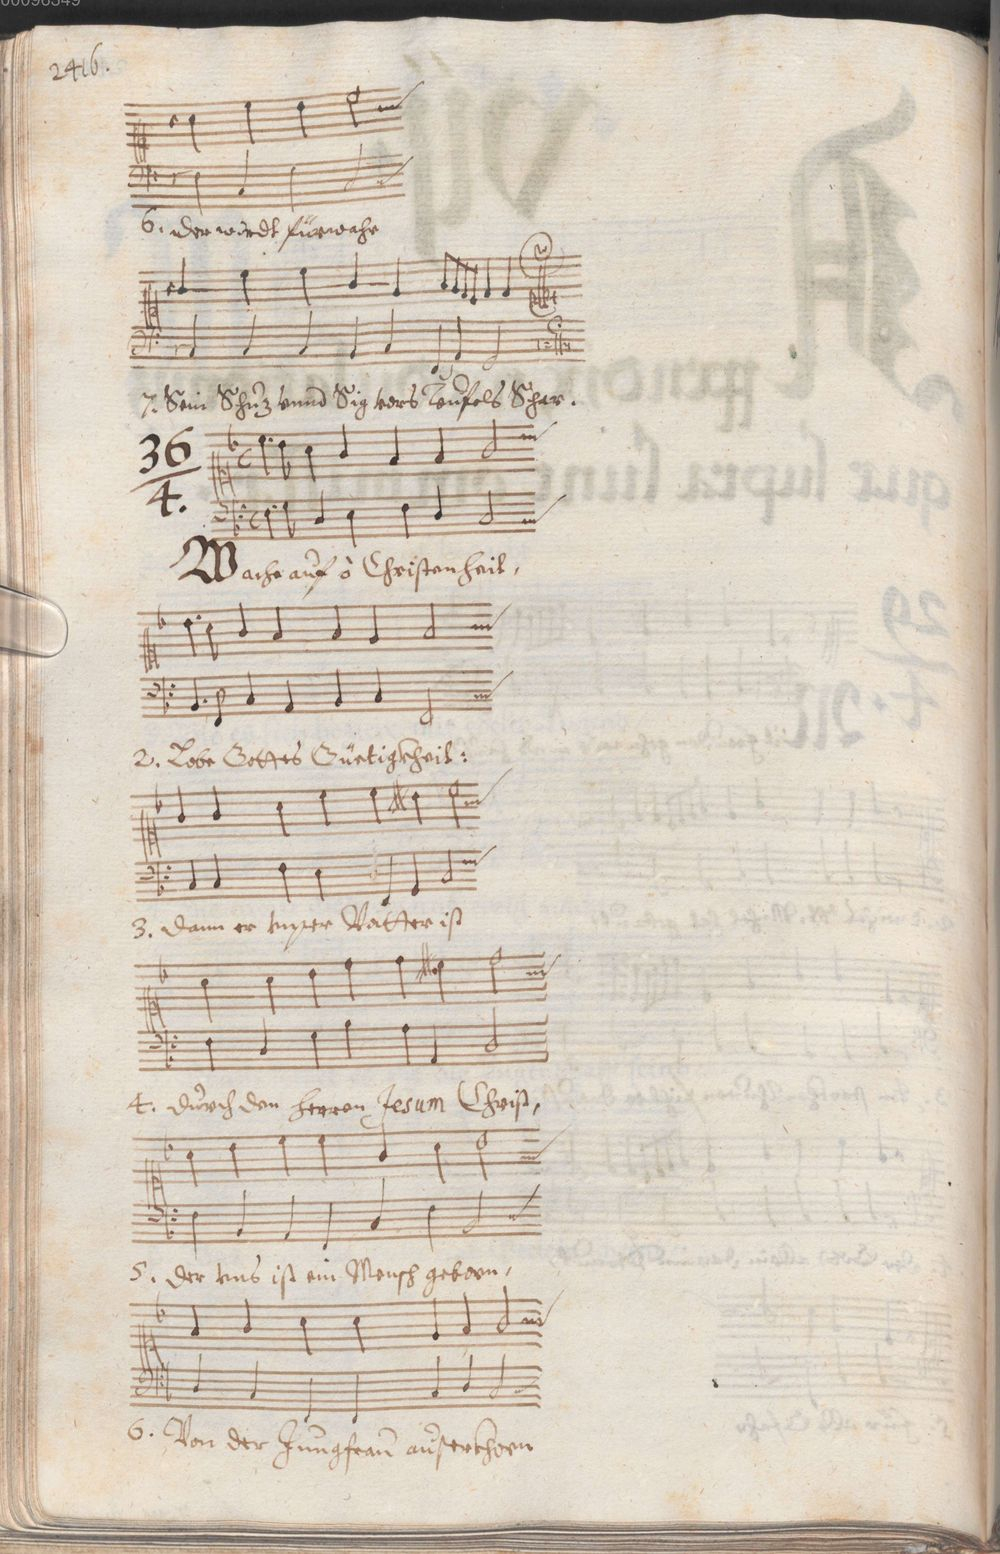 00096349
2416.
6. der wirdt fürwahr
7. Sein Schuz vnnd Sig vors Teufels Schar.
36
4.
Wache auf ô Christenheit,
2. Lobe Gottes Güetigkheit:
3. dann er vnser Vatter ist
4. durch den herren Jesum Christ,
5. der vns ist ein Mensch geborn,
6. Von der Jungfrau außerkhorn